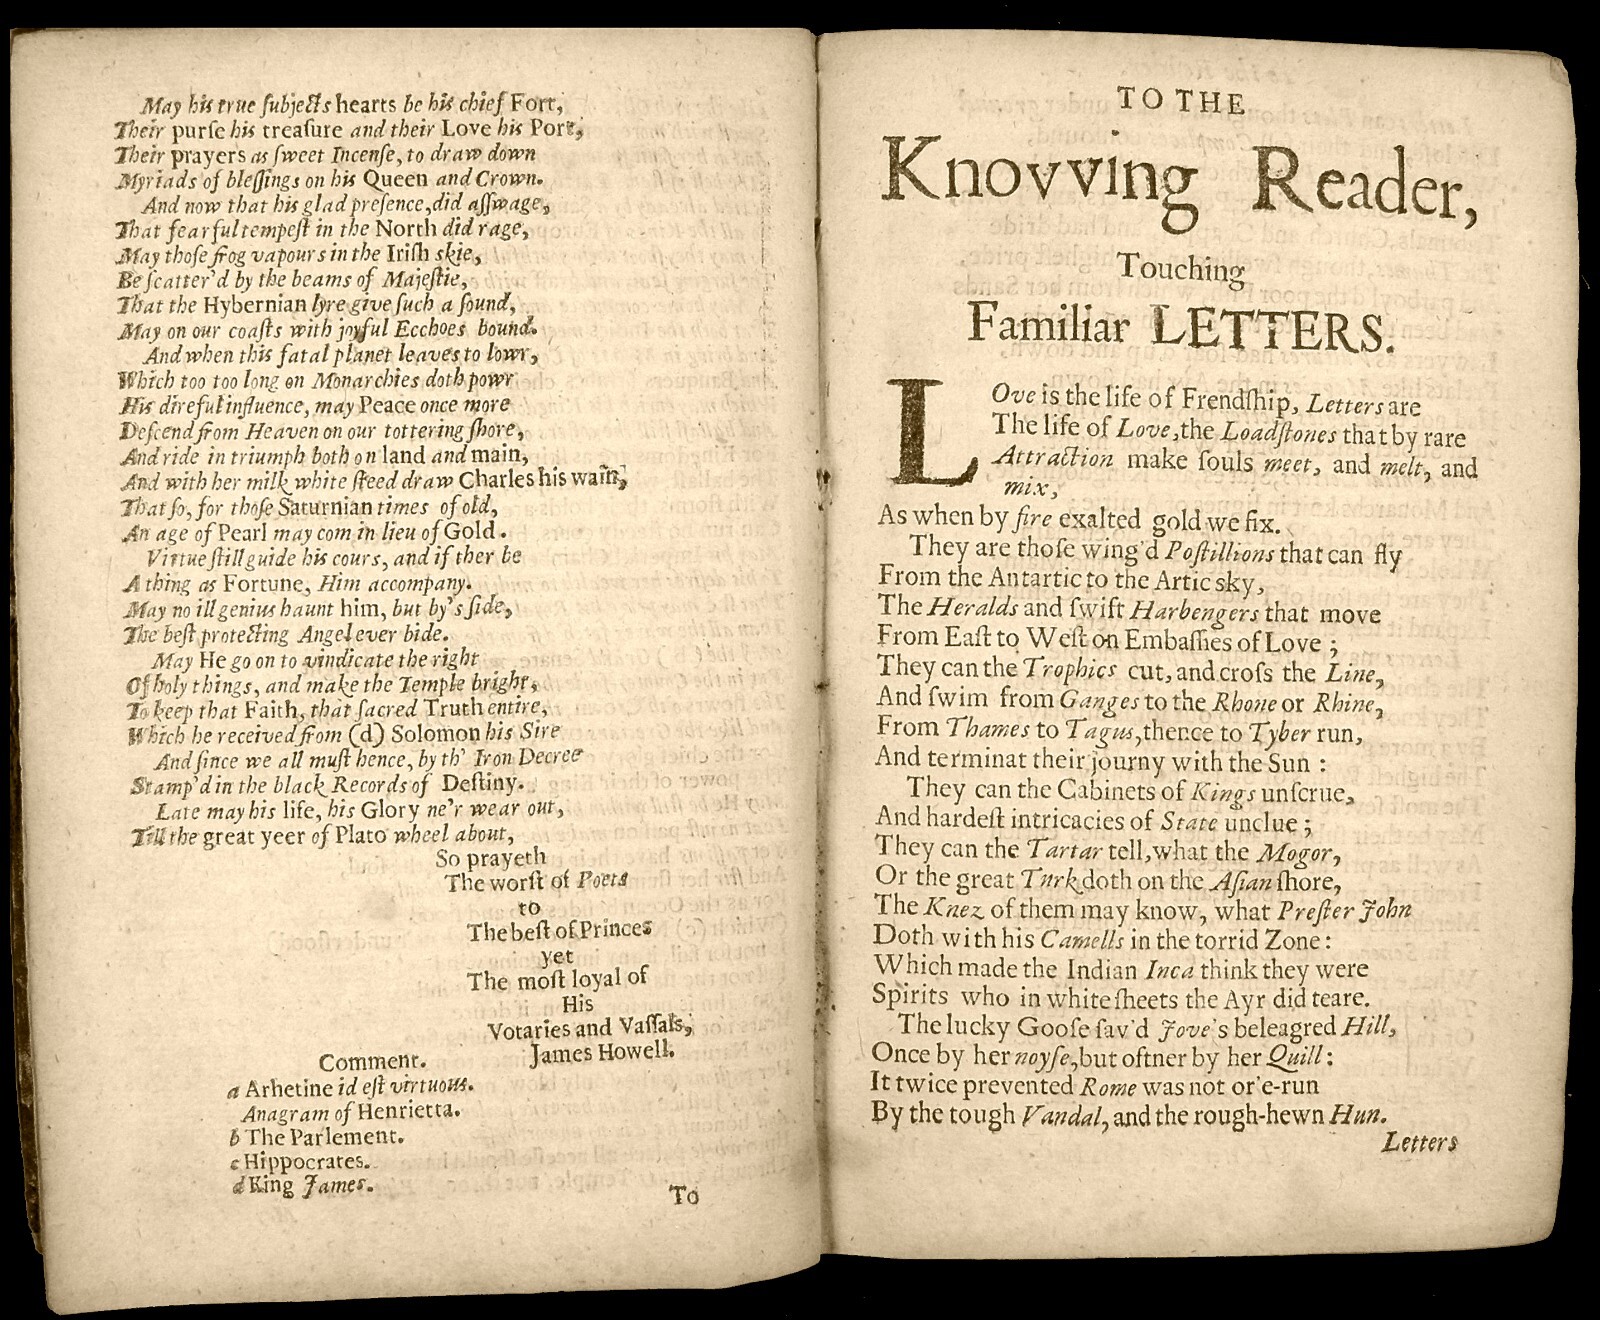 May his true ſubjects hearts be his chief Fort,
Their purſe his treaſure and their Love his Port,
Their prayers as ſweet Incenſe, to draw down
Myriads of bleſſings on his Queen and Crown.
And now that his glad preſence, did aſſwage,
That fearful tempeſt in the North did rage,
May thoſe frog vapours in the Iriſh skie,
Be ſcatter'd by the beams of Majeſtie,
That the Hybernian lyre give ſuch a ſound,
May on our coaſts with joyful Ecchoes bound.
And when this fatal planet leaves to lowr,
Which too too long on Monarchies doth powr
His direful influence, may Peace once more
Deſcend from Heaven on our tottering ſhore,
And ride in triumph both on land and main,
And with her milk white ſteed draw Charles his wain,
That ſo, for thoſe Saturnian times of old,
An age of Pearl may com in lieu of Gold.
Virtue ſtill guide his cours, and if ther be
A thing as Fortune, Him accompany.
May no ill genius haunt him, but by's ſide,
The beſt protecting Angel ever bide.
May He go on to vindicate the right
Of holy things, and make the Temple bright,
To keep that Faith, that ſacred Truth entire,
Which he received from (d) Solomon his Sire
And ſince we all muſt hence, by th' Iron Decree
Stamp'd in the black Records of Deſtiny.
Late may his life, his Glory ne'r wear out,
Till the great yeer of Plato wheel about,
So prayeth
The worſt of Poets
to
The beſt of Princes
yet
The moſt loyal of
His
Votaries and Vaſſals,
James Howell.
Comment.
a Arhetine id eſt virtuous.
Anagram of Henrietta.
b The Parlement.
c Hippocrates.
d King James.
To
TO THE
Knovving Reader,
Touching
Familiar LETTERS.
LOve is the life of Frendſhip, Letters are
The life of Love, the Loadſtones that by rare
Attraction make ſouls meet, and melt, and
mix,
As when by fire exalted gold we fix.
They are thoſe wing'd Poſtillions that can fly
From the Antartic to the Artic sky,
The Heralds and ſwift Harbengers that move
From Eaſt to Weſt on Embaſſies of Love ;
They can the Trophics cut, and croſs the Line,
And ſwim from Ganges to the Rhone or Rhine,
From Thames to Tagus, thence to Tyber run,
And terminat their journy with the Sun :
They can the Cabinets of Kings unſcrue,
And hardeſt intricacies of State unclue ;
They can the Tartar tell, what the Mogor,
Or the great Turk doth on the Aſian ſhore,
The Knez of them may know, what Preſter John
Doth with his Camells in the torrid Zone :
Which made the Indian Inca think they were
Spirits who in white ſheets the Ayr did teare.
The lucky Gooſe ſav'd Jove's beleagred Hill,
Once by her noyſe, but oftner by her Quill :
It twice prevented Rome was not or'e-run
By the tough Vandal, and the rough-hewn Hun.
Letters